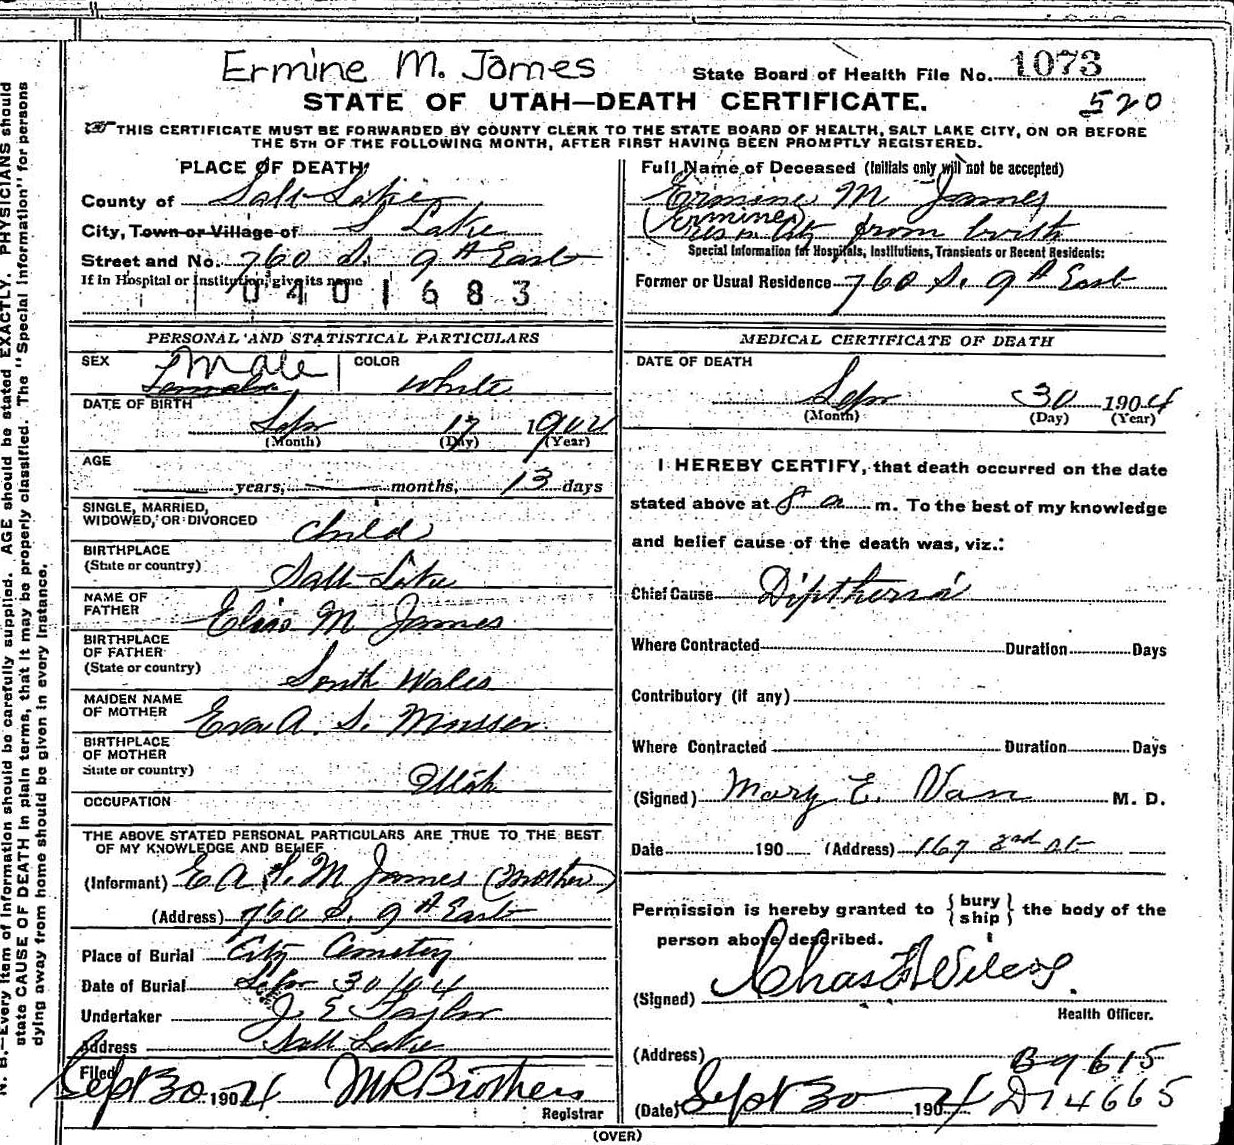 Ermine M. James
State Board of Health File No. 1073
STATE OF UTAH—DEATH CERTIFICATE.
520
THIS CERTIFICATE MUST BE FORWARDED BY COUNTY CLERK TO THE STATE BOARD OF HEALTH, SALT LAKE CITY, ON OR BEFORE
THE 5TH OF THE FOLLOWING MONTH, AFTER FIRST HAVING BEEN PROMPTLY REGISTERED.
PLACE OF DEATH
County of Salt Lake
City, Town or Village of S Lake
Street and No. 760 S. 9th East
If in Hospital or Institution, give its name
0401683
PERSONAL AND STATISTICAL PARTICULARS
SEX Male Female COLOR White
DATE OF BIRTH
Sep 17 1904
(Month) (Day) (Year)
AGE
years, months, 13 days
SINGLE, MARRIED,
WIDOWED, OR DIVORCED Child
BIRTHPLACE
(State or country) Salt Lake
NAME OF
FATHER Elias M James
BIRTHPLACE
OF FATHER
(State or country) South Wales
MAIDEN NAME
OF MOTHER Eva A. S. Musser
BIRTHPLACE
OF MOTHER
State or country) Utah
OCCUPATION
THE ABOVE STATED PERSONAL PARTICULARS ARE TRUE TO THE BEST
OF MY KNOWLEDGE AND BELIEF
(Informant) E A S. M James (Mother)
(Address) 760 S. 9th East
Place of Burial City Cemetery
Date of Burial Sep 30/04
Undertaker J E Taylor
Address Salt Lake
Filed Sept 30 1904 M R Brothers
Registrar
Full Name of Deceased (Initials only will not be accepted)
Ermine M James
(Ermine)
res in city from birth
Special Information for Hospitals, Institutions, Transients or Recent Residents:
Former or Usual Residence 760 S. 9th East
MEDICAL CERTIFICATE OF DEATH
DATE OF DEATH
Sep 30 1904
(Month) (Day) (Year)
I HEREBY CERTIFY, that death occurred on the date
stated above at 8 a m. To the best of my knowledge
and belief cause of the death was, viz.:
Chief Cause Diptheria
Where Contracted Duration Days
Contributory (if any)
Where Contracted Duration Days
(Signed) Mary E. Van M. D.
Date 190 (Address) 167 2nd St
Permission is hereby granted to {bury ship} the body of the
person above described.
(Signed) Chas F Wilcox
Health Officer.
(Address) B9615
(Date) Sept 30 1904 D14665
(OVER)
N. B.—Every item of information should be carefully supplied. AGE should be stated EXACTLY. PHYSICIANS should
state CAUSE OF DEATH in plain terms, that it may be properly classified. The "Special Information" for persons
dying away from home should be given in every instance.